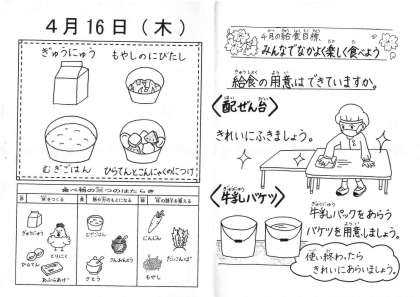 4月16日(木)
ぎゅうにゅう
もやしのにびたし
むぎごはん
ひらてんとこんにゃくのにつけ
食べ物の三つのはたらき
ぎゅうにゅう
とりにく
ひらてん
あぶらあげ
むぎごはん
さんおんとう
さとう
にんじん
もやし
4月の給食目標
みんなでなかよく楽しく食べよう
給食の用意はできていますか。
〈配ぜん台〉
きれいにふきましょう。
〈牛乳バケツ〉
牛乳パックをあらう
バケツを用意しましょう。
使い終わったら
きれいにあらいましょう。